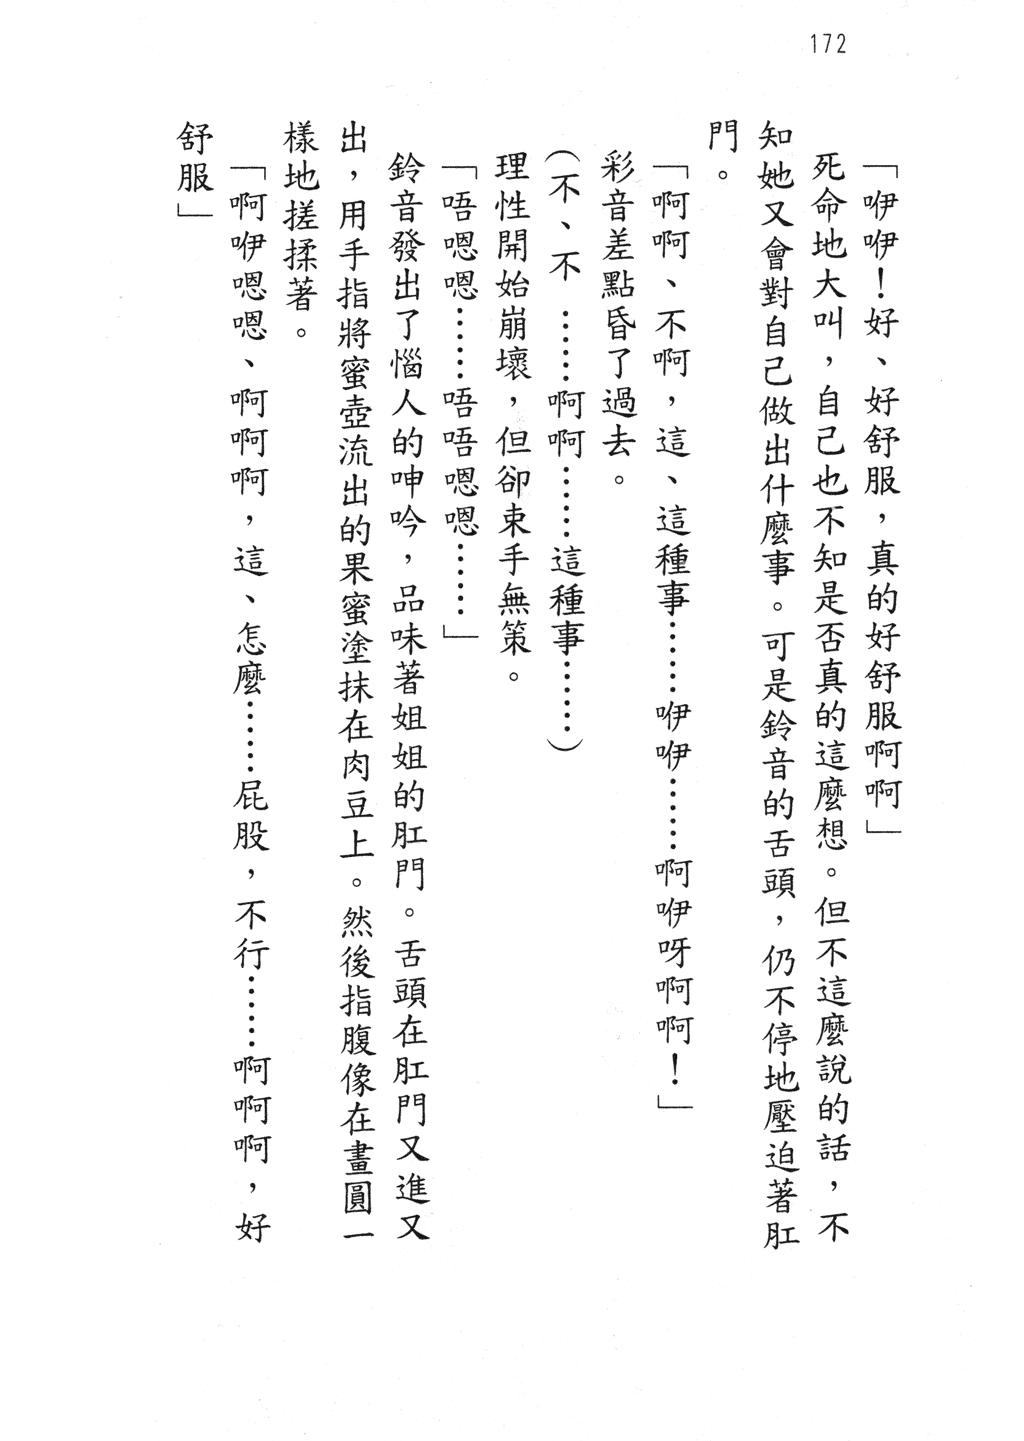 172
「咿咿！好、好舒服，真的好舒服啊啊」
死命地大叫，自己也不知是否真的這麼想。但不這麼說的話，不
知她又會對自己做出什麼事。可是鈴音的舌頭，仍不停地壓迫著肛
門。
「啊啊、不啊，這、這種事………咿咿………啊咿呀啊啊！」
彩音差點昏了過去。
（不、不………啊啊………這種事………）
理性開始崩壞，但卻束手無策。
「唔嗯嗯………唔唔嗯嗯………」
鈴音發出了惱人的呻吟，品味著姐姐的肛門。舌頭在肛門又進又
出，用手指將蜜壺流出的果蜜塗抹在肉豆上。然後指腹像在畫圓一
樣地搓揉著。
「啊咿嗯嗯、啊啊啊，這、怎麼………屁股，不行………啊啊啊，好
舒服」